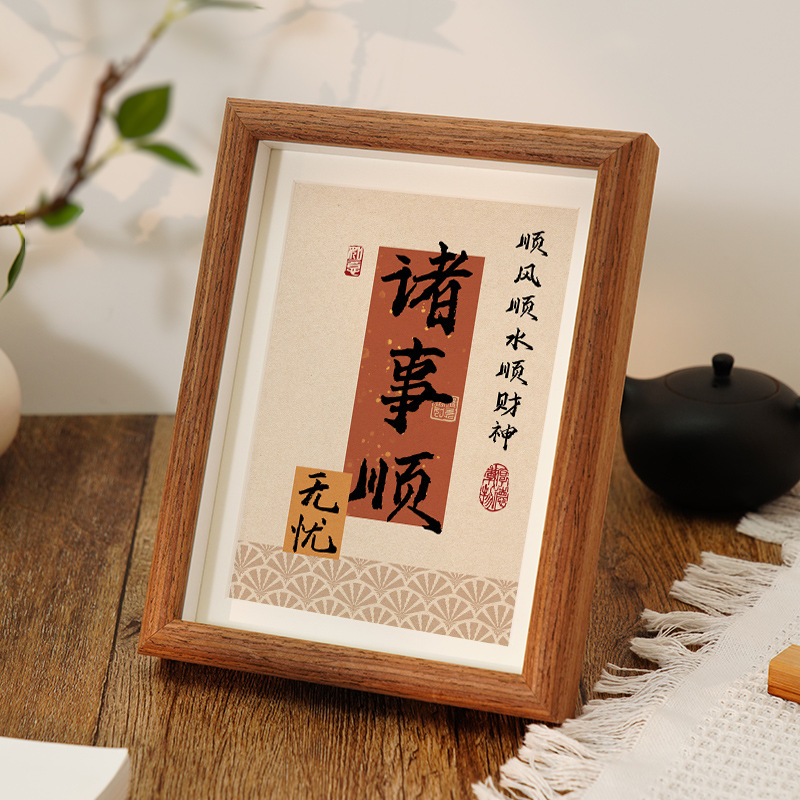 顺风顺水顺财神
诸事顺
无忧